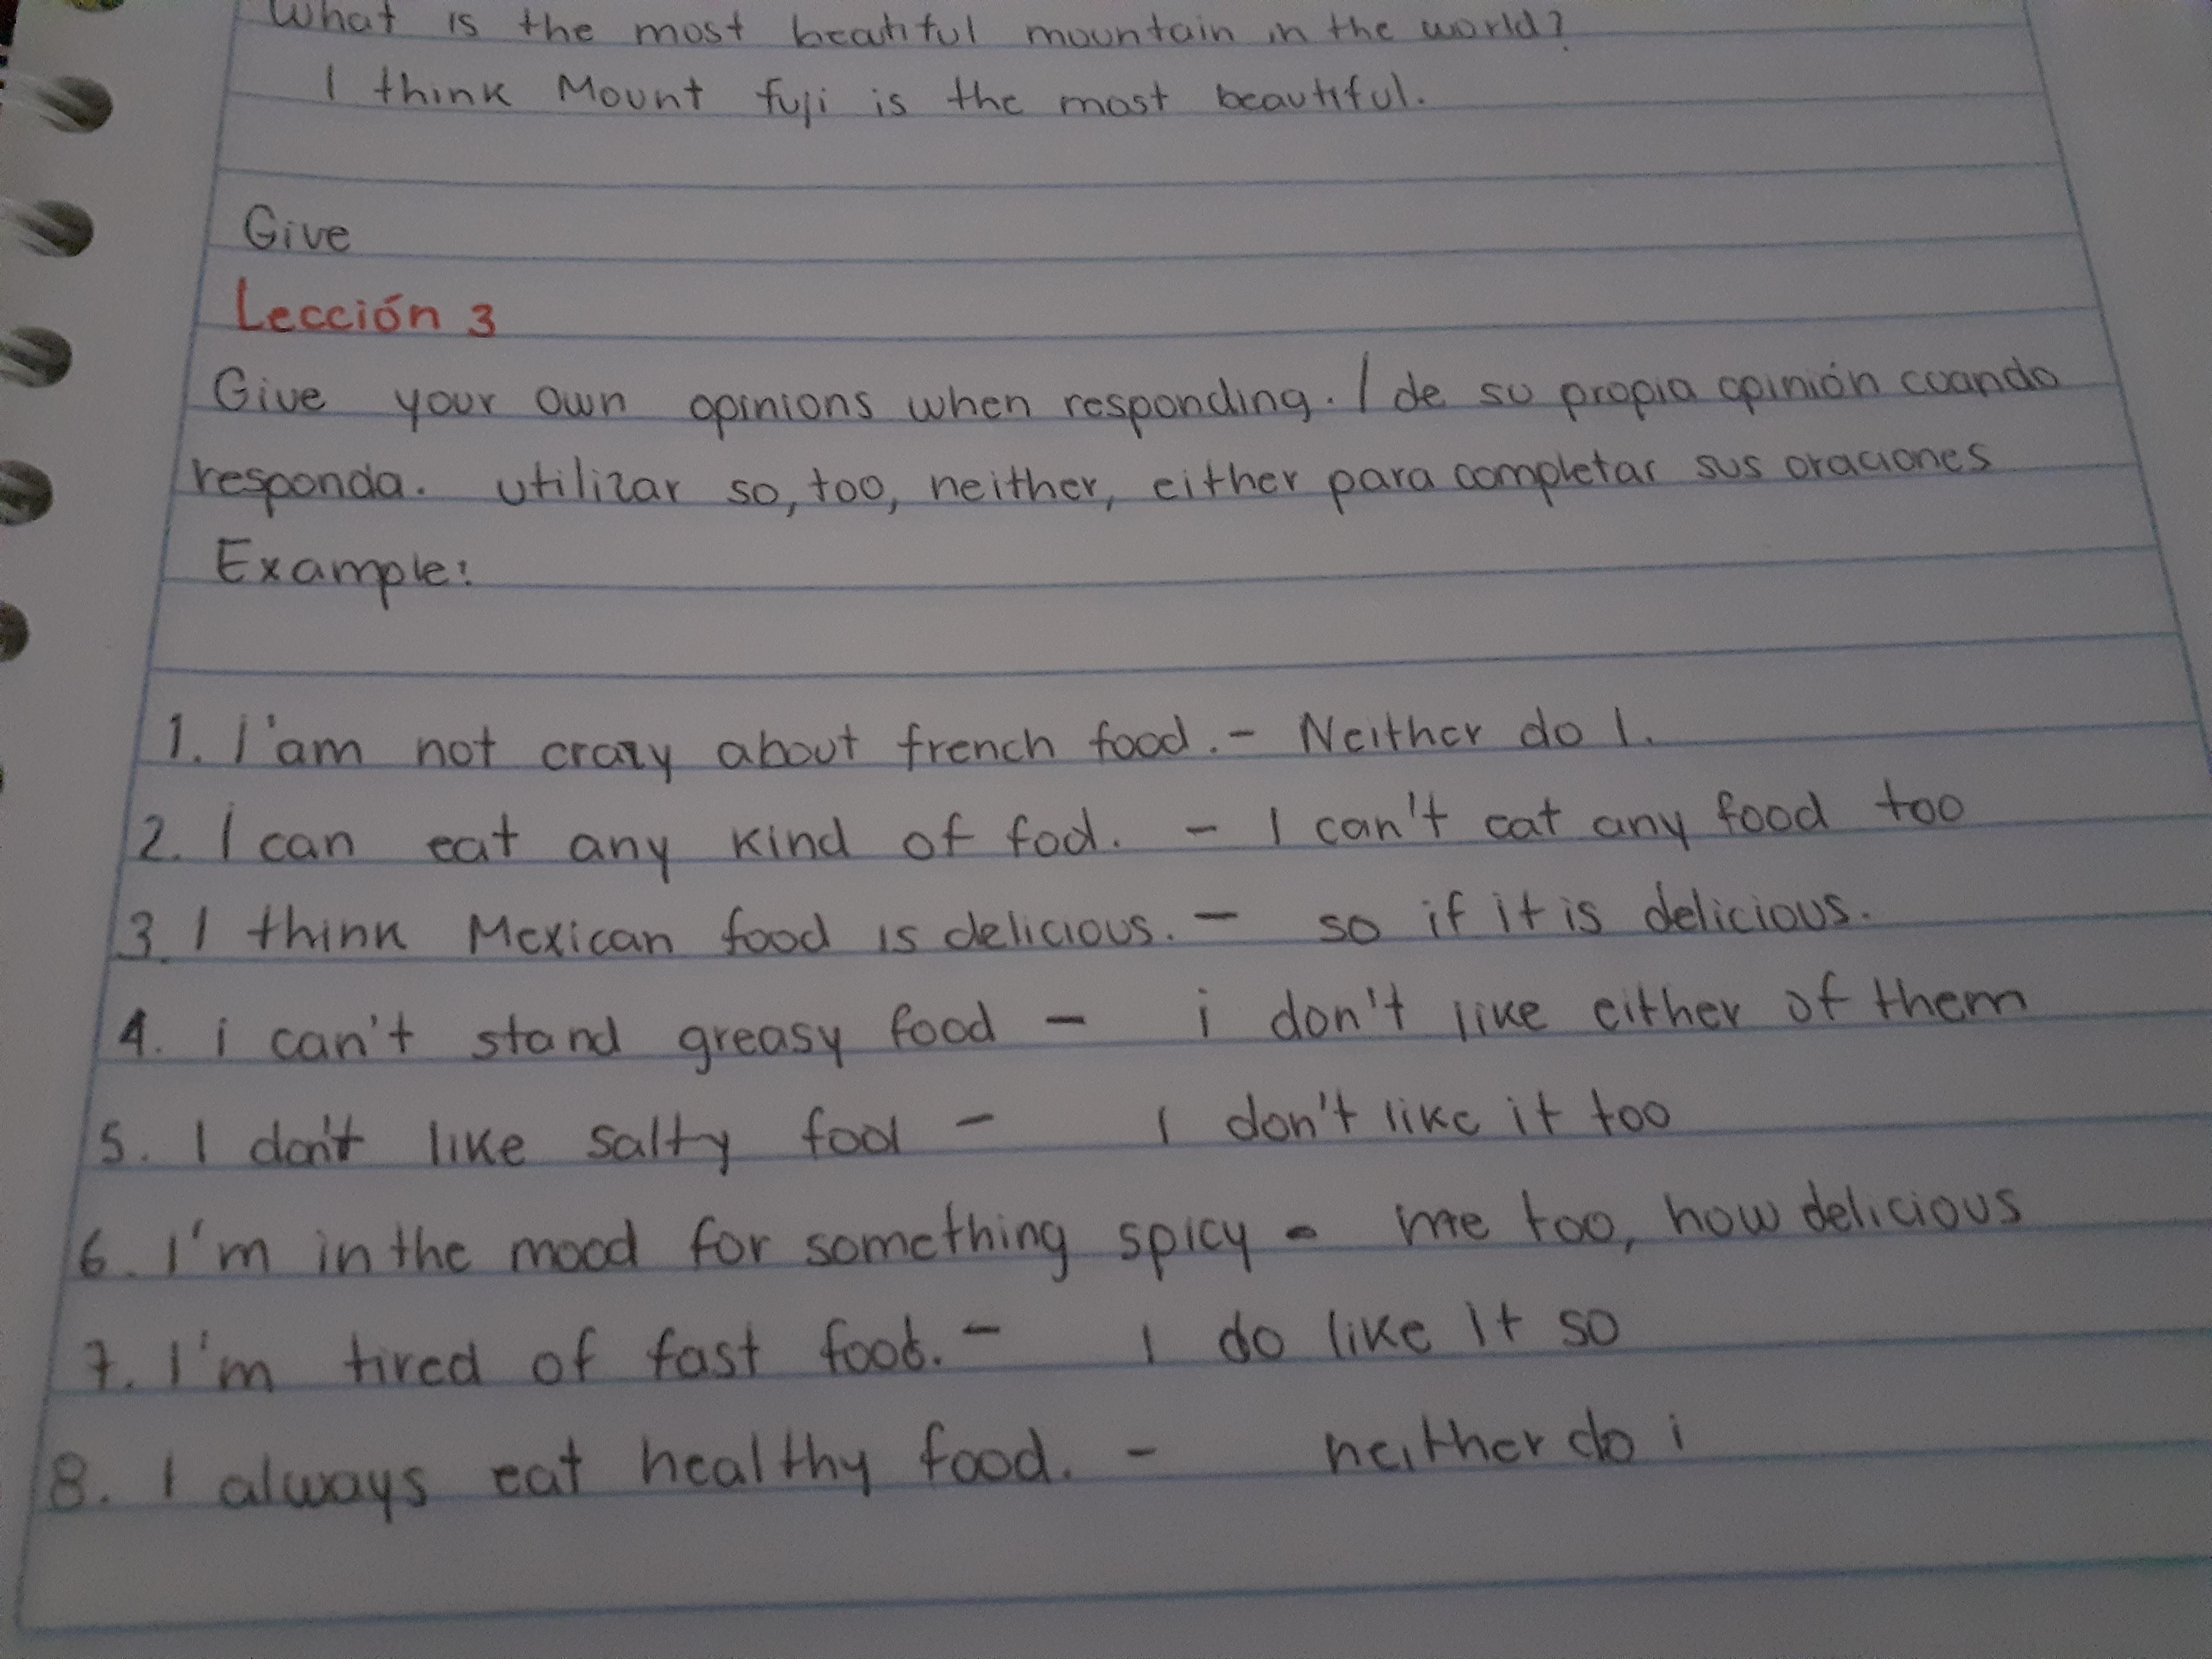 What is the most beatiful mountain in the world?
I think Mount fuji is the most beautiful.
Give
Lección 3
Give your own opinions when responding. / de su propia opinión cuando
responda. utilizar so, too, neither, either para completar sus oraciones
Example:
1. I'am not crazy about french food. - Neither do I.
2. I can eat any kind of fod. - I can't eat any food too
3. I think Mexican food is delicious. - so if it is delicious.
4. i can't stand greasy food - i don't like either of them
5. I don't like salty food - I don't like it too
6. I'm in the mood for something spicy - me too, how delicious
7. I'm tired of fast food. - I do like it so
8. I always eat healthy food. - neither do i